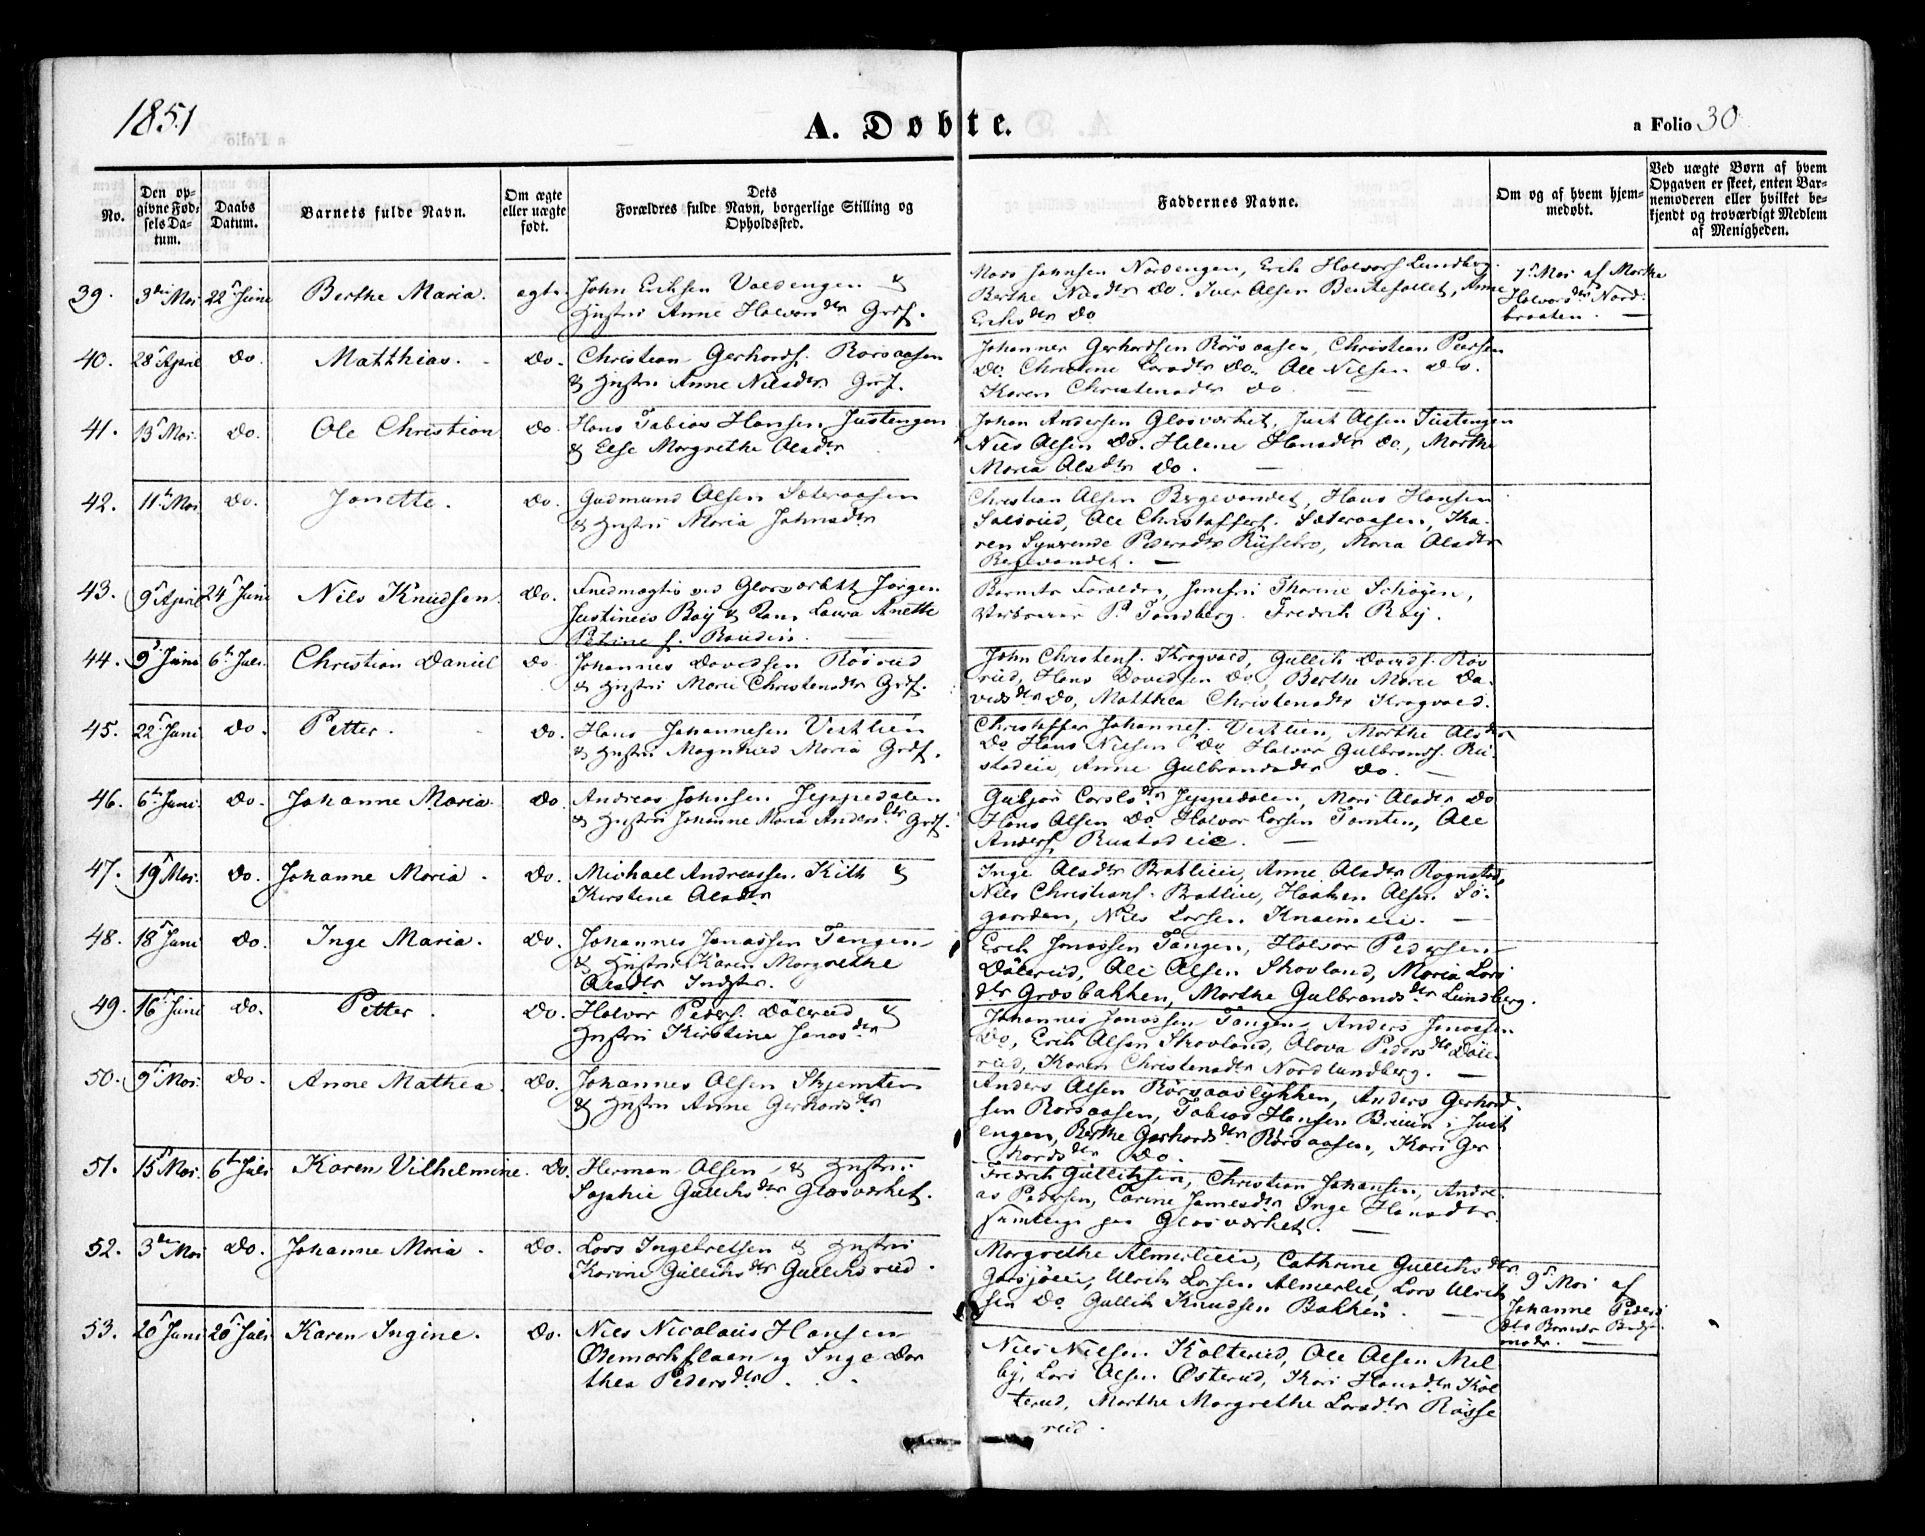 1851
A. Døbte.
a Folio 30
No.
Den op-
givne Fød-
sels Da-
tum.
Daabs
Datum.
Barnets fulde Navn.
Om ægte
eller uægte
født.
Dets
Forældres fulde Navn, borgerlige Stilling og
Opholdssted.
Faddernes Navne.
Om og af hvem hjem-
medøbt.
Ved uægte Børn af hvem
Opgaven er skeet, enten Bar-
nemoderen eller hvilket be-
kjendt og troværdigt Medlem
af Menigheden.
39. 3die Mai 22 Juni Berthe Maria. ægte. John Eriksen Valdengen &
Hustru Anne Halvorsdtr Grdf.
Lars Johnsen Nordengen, Erik Halvors Lundberg.
Berthe Nilsdtr Do. Iver Olsen Bentefallet, Anne
Eriksdtr Do
7 Mai af Marthe
Halvorsdtr Nord-
braaten.
40. 28 April Do. Matthias. Do. Christian Gerhards. Rorsaasen
& Hustru Anne Nilsdtr Grdf.
Johannes Gerhardsen Rørsaasen, Christian Pedersen
Do. Christine Larsdtr Do. Ole Nilsen Do.
Karen Christensdtr Do.
41. 13 Mai. Do. Ole Christian Do. Hans Tobias Hansen Justengen
& Else Margrethe Olsdtr
Johan Andersen Glasværket, Just Olsen Justengen
Nils Olsen Do. Helene Hansdtr Do, Marthe
Maria Olsdtr Do.
42. 11 Mai Do. Janette. Do. Gudmund Olsen Sæteraasen
& Hustru Maria Johnsdtr
Christian Olsen Bergevandet, Hans Hansen
Ole Christoffers. Sæteraasen, Ka-
ren Pedersdtr Maria Olsdtr
43. 9 April 24 Juni Nils Knudsen. Do. Fuldmægtig ved Glasværket Jørgen
Justineus Bay & Laura Anette
Petine f.
Barnets Forældre, Jomfru Thorine Schøyen,
P. Sandberg. Fredrik Bay.
44. 9 Juni 6te Juli. Christian Daniel Do. Johannes Davidsen Rösrud
& Hustru Marie Christensdtr Grdf.
John Christens. Kragvold, Gullik Davids. Røs
rud, Hans Davidsen Do, Berthe Marie Da-
vidsdtr Do, Matthea Christensdtr Kragvold.
45. 22 Juni Do. Petter. Do. Hans Johannesen Vestlien
& Hustru Magnhild Maria Grdf.
Christoffer Johannes. Vestlien, Marthe Olsdtr
Do Hans Nilsen Do Halvor Gulbrands. Ru-
stadeie, Anne Gulbrandsdtr Do.
46. 6te Juni. Do. Johanne Maria. Do. Andreas Johnsen Jeppedalen
& Hustru Johanne Maria Andersdtr Grdf.
Gubjør Carlsdtr Jeppedalen, Mari Olsdtr Do
Hans Olsen Do. Halvor Larsen Tomten, Ole
Anders. Rustadeie.
47. 19 Mai. Do. Johanne Maria. Do. Michael Andreassen Kith &
Kirstine Olsdtr
Inge Olsdtr Bratlieie, Anne Olsdtr Rognstad,
Nils Christians. Bratlie, Haaken Olsen Sø-
gaarden, Nils Larsen
48. 18 Juni Do. Inge Maria. Do. Johannes Jonassen Tangen
& Hustru Karen Margrethe
Olsdtr Indstr.
Erik Jonassen Tangen, Halvor Pedersen
Dølerud, Ole Olsen Skovland, Maria Lars
dtr Græsbakken, Marthe Gulbrandsdtr Lundberg.
49. 16 Juni Do. Petter. Do. Halvor Peders. Dølerud &
Hustru Kirstine Jonasdtr
Johannes Jonassen Tangen, Anders Jonassen
Do, Erik Olsen Skovland, Olava Pedersdtr Døle-
rud, Karen Christensdtr Nordlundberg.
50. 9 Mai. Do. Anne Mathea Do. Johannes Olsen Skjemten
& Hustru Anne Gerhardsdtr
Anders Olsen Rørsaaslykken, Anders Gerhard-
sen Rorsaasen, Tobias Hansen Just
engen, Berthe Gerhardsdtr Rørsaasen, Kari Ger
hardsdtr Do.
51. 15 Mai. 6te Juli Karen Vilhelmine. Do. Herman Olsen & Hustru
Sophie Gulliksdtr Glasværket.
Fredrik Gulliksen, Christian Johansen, Andre-
as Pedersen, Carine Inge Hansdtr.
samtlige paa Glasværket.
52. 3die Mai Do. Johanne Maria. Do. Lars Ingebretsen & Hustru
Karine Gulliksdtr Gulliksrud.
Margrethe Almerlieie, Cathrine Gulliksdtr
Garsjøeie, Ulrik Larsen Almerlie, Lars Ulrik
sen Do Gullik Knudsen Bakken.
9 Mai af
Johanne Peders
dtr Barnets
moder.
53. 20 Juni 20 Juli Karen Ingine. Do. Nils Nicolaus Hansen
Ødemarksflaen og Inge Dor
thea Pedersdtr.
Nils Nilsen Kolterud, Ole Olsen Mel
by, Lars Olsen Østerud, Kari Hansdtr Kol
terud, Marthe Margrethe Larsdtr Røsse
rud.